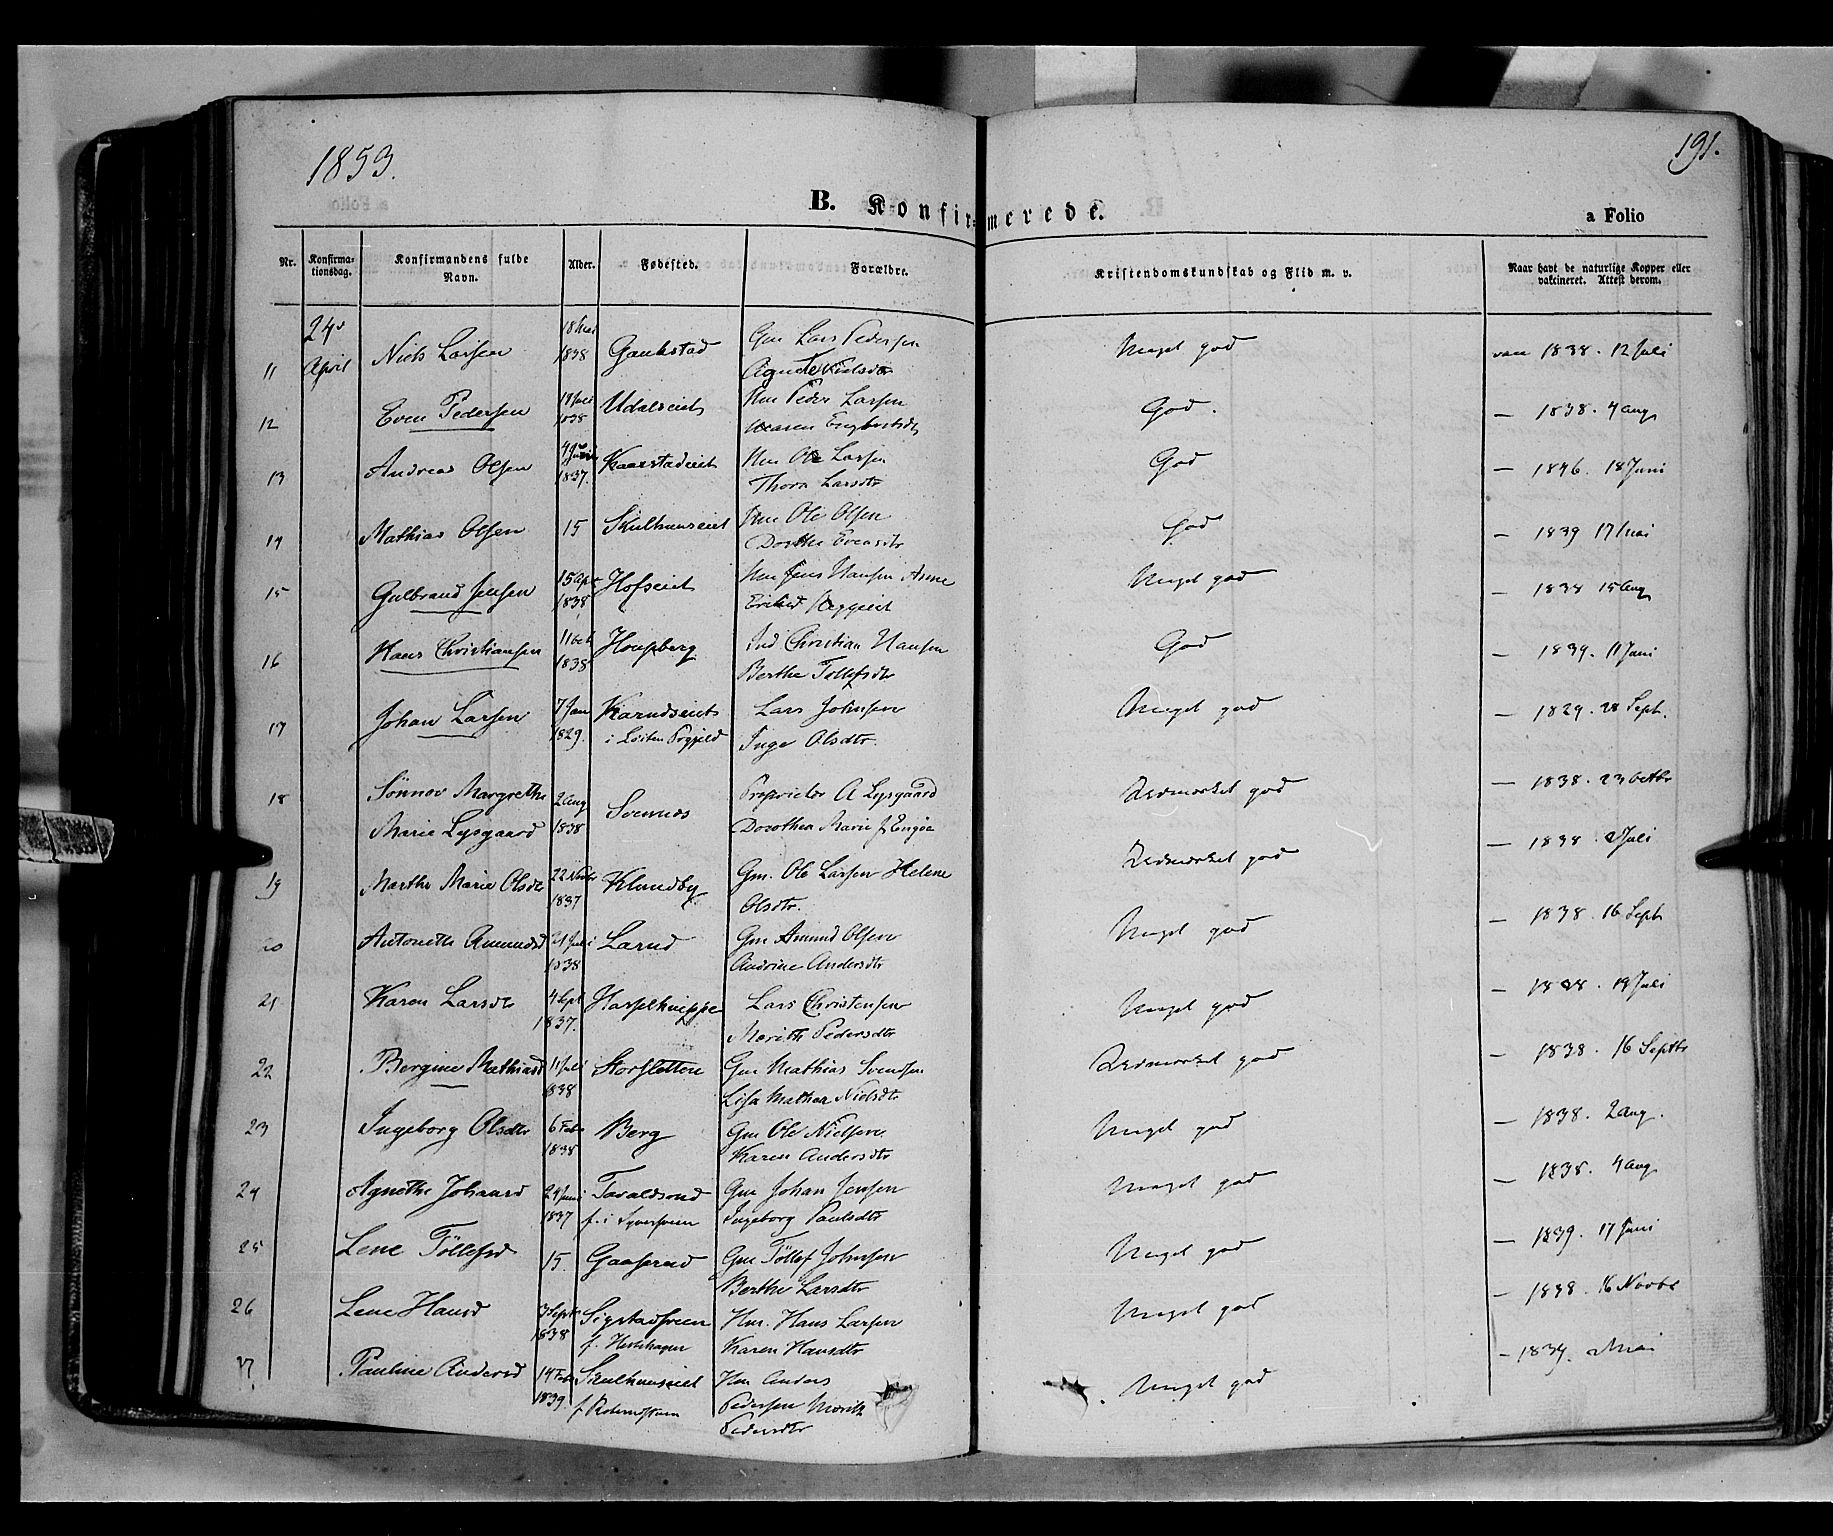 1853.
191.
B. Konfirmerede.
a Folio
Nr. Konfirmationsdag. Konfirmandens fulde Navn. Alder. Fødested. Forældre. Kristendomskundskab og Flid m. v. Naar havt de naturlige Kopper eller vakcineret. Attest derom.
24de April
11 Niels Larsen 18 Mai 1838 Gaukstad Gm Lars Pedersen Meget god vac 1838. 12 Juli
Agnete Nielsdtr
12 Even Pedersen 18 Juli 1838 Udalseiet Hm Peder Larsen God. — 1838. 4 Aug
Maren Engebretsdtr
13 Andreas Olsen 1837. Kaarstadeiet Hm Ole Larsen God — 1846. 18 Juni
Thora Larsdtr
14 Mathias Olsen 15 Skulhuuseiet Hm Ole Olsen God — 1839 17 Mai
Dorthe Evensdtr
15 Gulbrand Jensen 15 Apr 1838 Hofseiet Hm Jens Hansen Anne Meget god — 1838 15 Aug
16 Hans Christiansen 11 Oct 1838 Ind Christian Hansen God — 1839. 11 Juni
Berthe Tollefsdtr
17 Johan Larsen 7 Jan 1829. Lars Johnsen Meget god — 1829. 28 Sept.
i Løiten Prgjeld Inge Olsdtr.
18 Sønnov Margrethe 2 Aug 1838 Svennes Proprietær A Lysgaard Udmærket god — 1838. 23 Octbr
Marie Lysgaard Dorothea Marie f Engøe
19 Marthe Marie Olsdtr 22 Novbr 1837 Klundby Gm. Ole Larsen Helene Udmærket god — 1838. 2 Juli
Olsdtr.
20 Antonette Amundsd 21 Juli 1838 Larud Gm Amund Olsen Meget god — 1838. 16 Sept
Andrine Andersdtr
21 Karen Larsdtr 4 Sept 1837. Hasselknippe Lars Christensen Meget god — 1838. 19 Juli
Marith Pedersdtr
22 Bergine Mathiasd 11 Juli 1838 Storsletten Gm Mathias Svendsen Udmærket god — 1838. 16 Septbr
Lisa Mathea Nielsdtr
23 Ingeborg Olsdtr 6 Febr 1838 Berg Gm Ole Nielsen Meget god — 1838. 2 Aug.
Karen Andersdtr
24 Agnethe Johansd 24 Juni 1837 Gm Johan Jensen Meget god — 1838. 4 Aug
Ingeborg Paulsdtr
25 Lene Tøllefsd 15. Gaaserud Gm Tøllef Johnsen Meget god — 1839. 17 Juni
Berthe Larsdtr
26 Lene Hansd 3 Sept 1838 Sigstadsveen Hm. Hans Larsen Meget god — 1838. 16 Novbr
Karen Hansdtr
27 Pauline Andersd 14 Feb 1839 Skulhuuseiet Hm Anders Meget god — 1839. Mai
Pedersen Marith
Pedersdtr